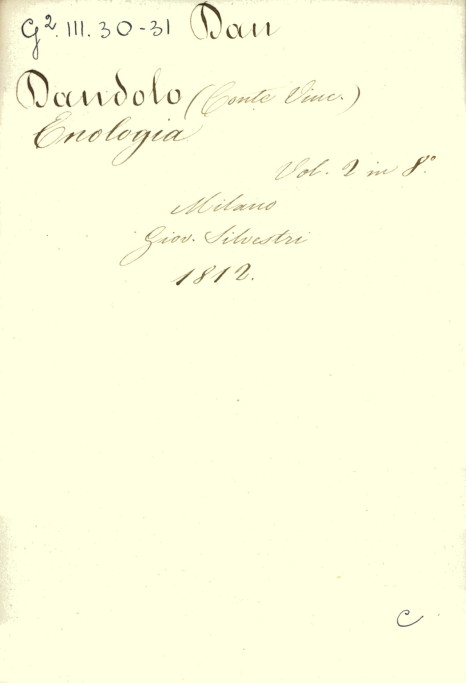 G². III. 30-31 Dan
Dandolo (Conte Vinc.)
Enologia
Vol. 2 in 8.°
Milano
Giov. Silvestri
1812.
C